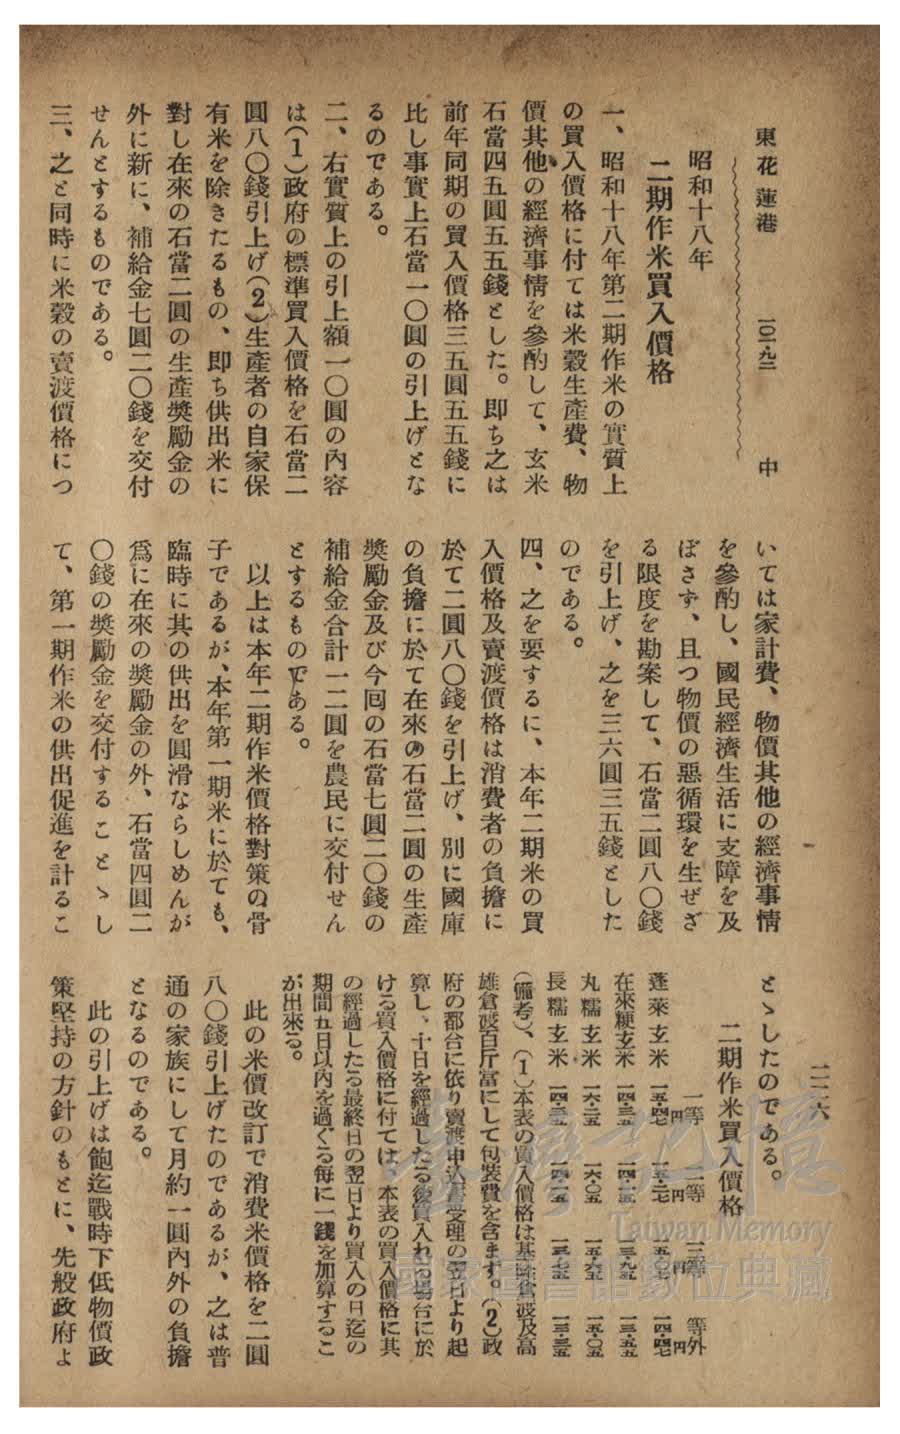 東花蓮港　一〇一・九三　中
昭和十八年
二期作米買入價格
一、昭和十八年第二期作米の實質上
の買入價格に付ては米穀生產費、物
價其他の經濟事情を參酌して、玄米
石當四五圓五五錢とした。卽ち之は
前年同期の買入價格三五圓五五錢に
比し事實上石當一〇圓の引上げとな
るのである。
二、右實質上の引上額一〇圓の內容
は(1)政府の標準買入價格を石當二
圓八〇錢引上げ(2)生產者の自家保
有米を除きたるもの、卽ち供出米に
對し在來の石當二圓の生產奬勵金の
外に新に、補給金七圓二〇錢を交付
せんとするものである。
三、之と同時に米穀の賣渡價格につ
いては家計費、物價其他の經濟事情
を參酌し、國民經濟生活に支障を及
ぼさず、且つ物價の惡循環を生ぜざ
る限度を勘案して、石當二圓八〇錢
を引上げ、之を三六圓三五錢とした
のである。
四、之を要するに、本年二期米の買
入價格及賣渡價格は消費者の負擔に
於て二圓八〇錢を引上げ、別に國庫
の負擔に於て在來の石當二圓の生產
奬勵金及び今回の石當七圓二〇錢の
補給金合計一二圓を農民に交付せん
とするものである。
以上は本年二期作米價格對策の骨
子であるが、本年第一期米に於ても、
臨時に其の供出を圓滑ならしめんが
爲に在來の奬勵金の外、石當四圓二
〇錢の奬勵金を交付することゝし
て、第一期作米の供出促進を計るこ
とゝしたのである。
二期作米買入價格
一等　二等　三等　等外
蓬萊玄米　一五・四七円　一五・二七円　一五・〇七円　一四・四七円
在來粳玄米　一四・三五　一四・一五　一三・九五　一三・五五
丸糯玄米　一六・二五　一六・〇五　一五・六五　一五・〇五
長糯玄米　一四・三五　一四・一五　一三・七五　一三・三五
(備考)、(1)本表の買入價格は基隆倉渡及高
雄倉渡百斤當にして包裝費を含ます。(2)政
府の都合に依り賣渡申込書受理の翌日より起
算し、十日を經過したる後買入れる場合に於
ける買入價格に付ては、本表の買入價格に其
の經過したる最終日の翌日より買入の日迄の
期間五日以內を過ぐる每に一錢を加算するこ
が出來る。
此の米價改訂で消費米價格を二圓
八〇錢引上げたのであるが、之は普
通の家族にして月約一圓內外の負擔
となるのである。
此の引上げは飽迄戰時下低物價政
策堅持の方針のもとに、先般政府よ
一二六
臺灣記憶
Taiwan Memory
國家圖書館數位典藏